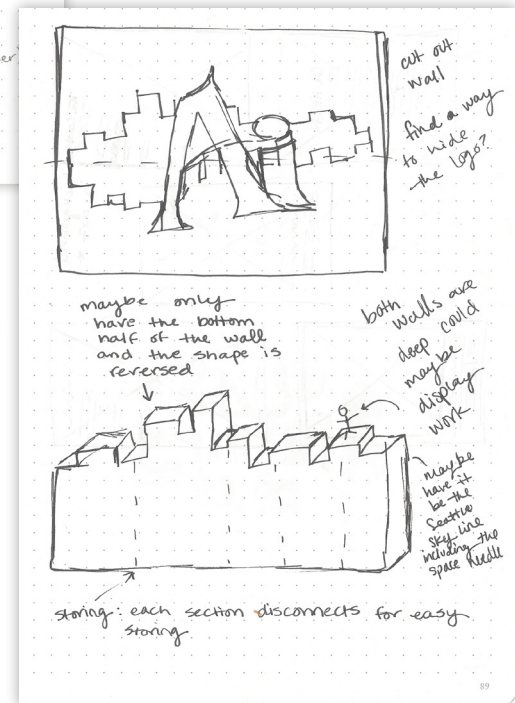 er
cut out
wall
find a way
to hide
the logo?
Ai
maybe only
have the bottom
half of the wall
and the shape is
reversed
both
walls are
deep could
maybe
display
work
maybe
have it
be the
Seattle
Sky line
including the
space needle
storing: each section disconnects for easy
storing
89